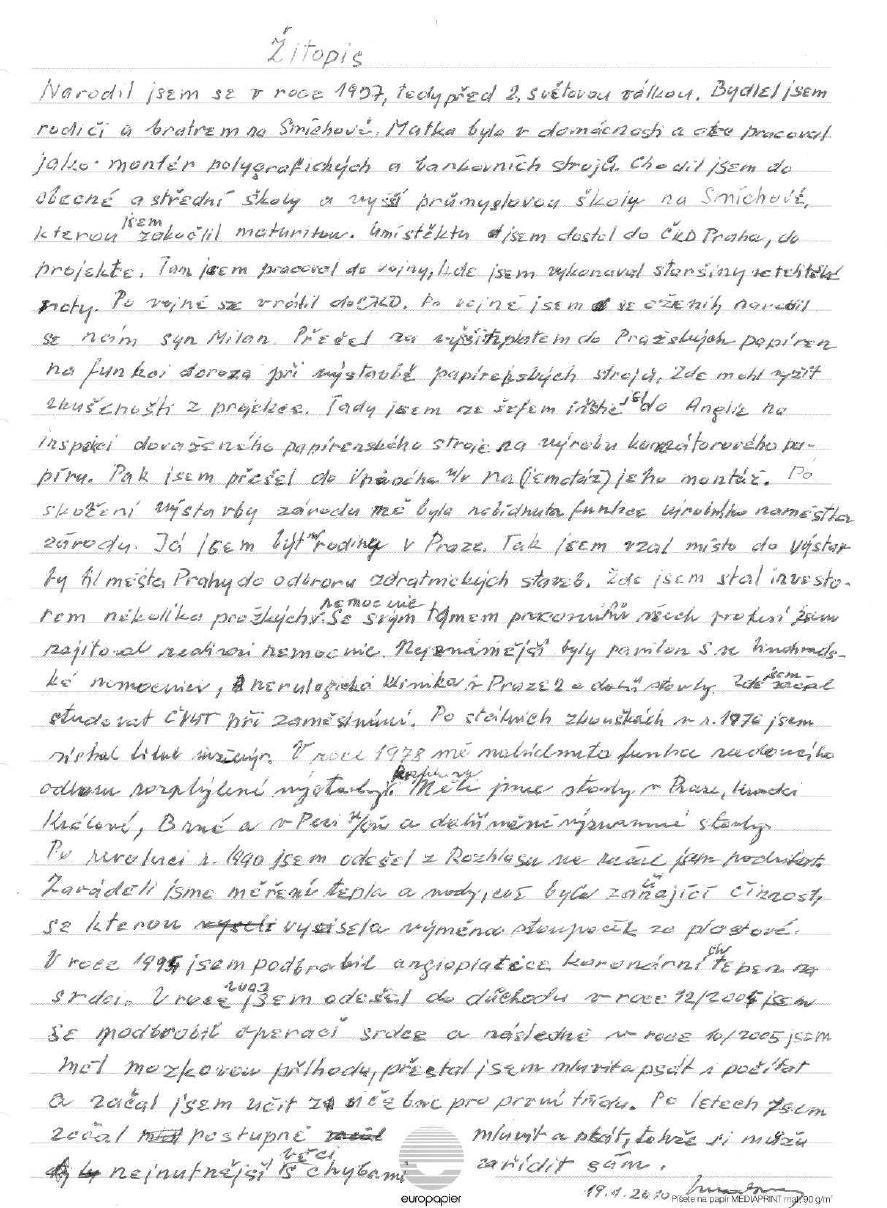 Žitopis
Narodil jsem se v roce 1937, tedy před 2. světovou válkou. Bydlel jsem
rodiči a bratrem na Smíchově. Matka byla v domácnosti a otec pracoval
jako montér polygrafických a bankovních strojů. Chodil jsem do
obecné a střední školy a vyšší průmyslovou školy na Smíchově,
kterou jsem zakočlil maturitou. Umístěktu jsem dostal do ČKD Praha, do
projekte. Tam jsem pracoval do vojny, kde jsem vykonaval staršiny
roty. Po vojně se vrátil do ČKD. Po vojně jsem se oženih narodil
se nám syn Milan. Přešel za vyššitplatem do Pražských papíren
na funkci doroza při výstavbě papírenských strojů. Zde mohl vyžít
zkušenošti z projekce. Tady jsem ze šefem jel do Anglie na
inspekci dovaženého papírenského stroje na výrobu konzátorového pa-
píru. Pak jsem přešel do n/v na (jemotáž) jeho montáž. Po
skožení výstavby závodu mě byla nabídnuta funkce výrobního naměstka
závody. Já jsem být rodiny v Praze. Tak jsem vzal místo do výstav-
by hl města Prahy do odboru zdratnických staveb. Zde jsem stal investo-
rem několika pražkých nemocnic. Se svým týmem pracovníků všech profesí jsem
zajitoval realizaci nemocnic. Nejznámější byly pavilon S ve Vinohrads-
ké nemocnici, nerulogická klinika v Praze 2 a další stavby. Zde jsem začal
studovat ČVUT při zaměstnání. Po státních zkouškách v r. 1976 jsem
získal titul inženýr. V roce 1978 mě nabídnuta funkce vedoucího
odboru rozptýlené výstavby Rozhlasu. Měli jsme stavby v Praze, Hradci
Králové, Brně a v Peci n/sn a další méně významné stavby.
Po revoluci r. 1990 jsem odešel z Rozhlasu na začal jsem podnikat.
Zaváděli jsme měření tepla a vody, což byla začínající činnost,
se kterou vysisela výměna stoupaček za plastové.
V roce 1995 jsem podbrabil angioplatice koronárních tepen na
srdci. V roce 2003 jsem odešel do důchodu v roce 12/2004 jsem
se podbrobil operaci srdce a následně v roce 10/2005 jsem
měl mozkovou příhodu, přestal jsem mluvit a psát i počítat
a začal jsem učit z učebnic pro první třídu. Po letech jsem
začal postupně mluvit a psát, takže si můžu
nejnutnější věci s chybami zařídit sám.
19.1.2010
europapier
Píšete na papír MEDIAPRINT mat, 90 g/m²